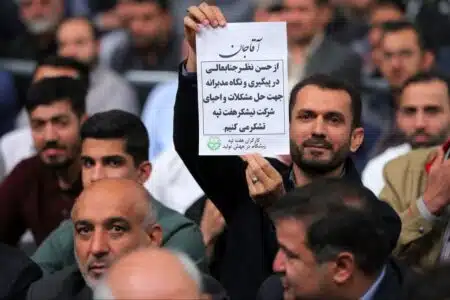 آقاجان
از حسن نظر جنابعالی
در پیگیری و نگاه مدبرانه
جهت حل مشکلات و احیای
شرکت نیشکر هفت تپه
تشکر می کنیم
کارگران هفت تپه
پیشگام در جهش تولید